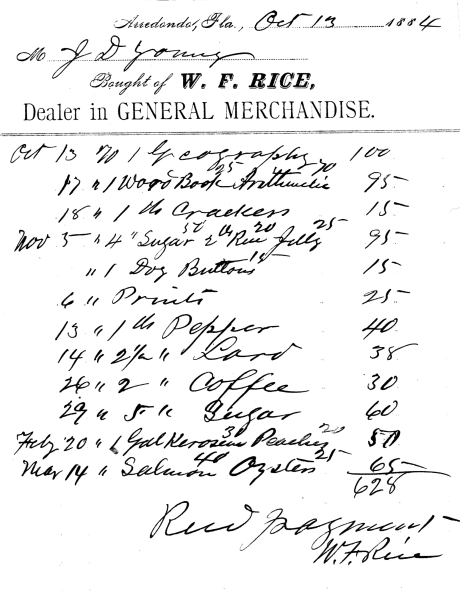 Arredondo, Fla., Oct 13 1884
M J D Young
Bought of W. F. RICE,
Dealer in GENERAL MERCHANDISE.
Oct 13 To 1 Geography 100
17 " 1 Wood Book 25 Arithmetic 70 95
18 " 1 lb Crackers 15
Nov 5 " 4 " Sugar 50 2 lb Rice 20 Jelly 25 95
" 1 Doz Buttons 15 15
6 " Prints 25
13 " 1 lb Pepper 40
14 " 2 1/2 " Lard 38
26 " 2 " Coffee 30
29 " 5 " Sugar 60
Feby 20 " 1 Gal Kerosene 30 Peaches 20 50
Mar 14 " Salmon 40 Oysters 25 65
628
Recd payment
W. F. Rice